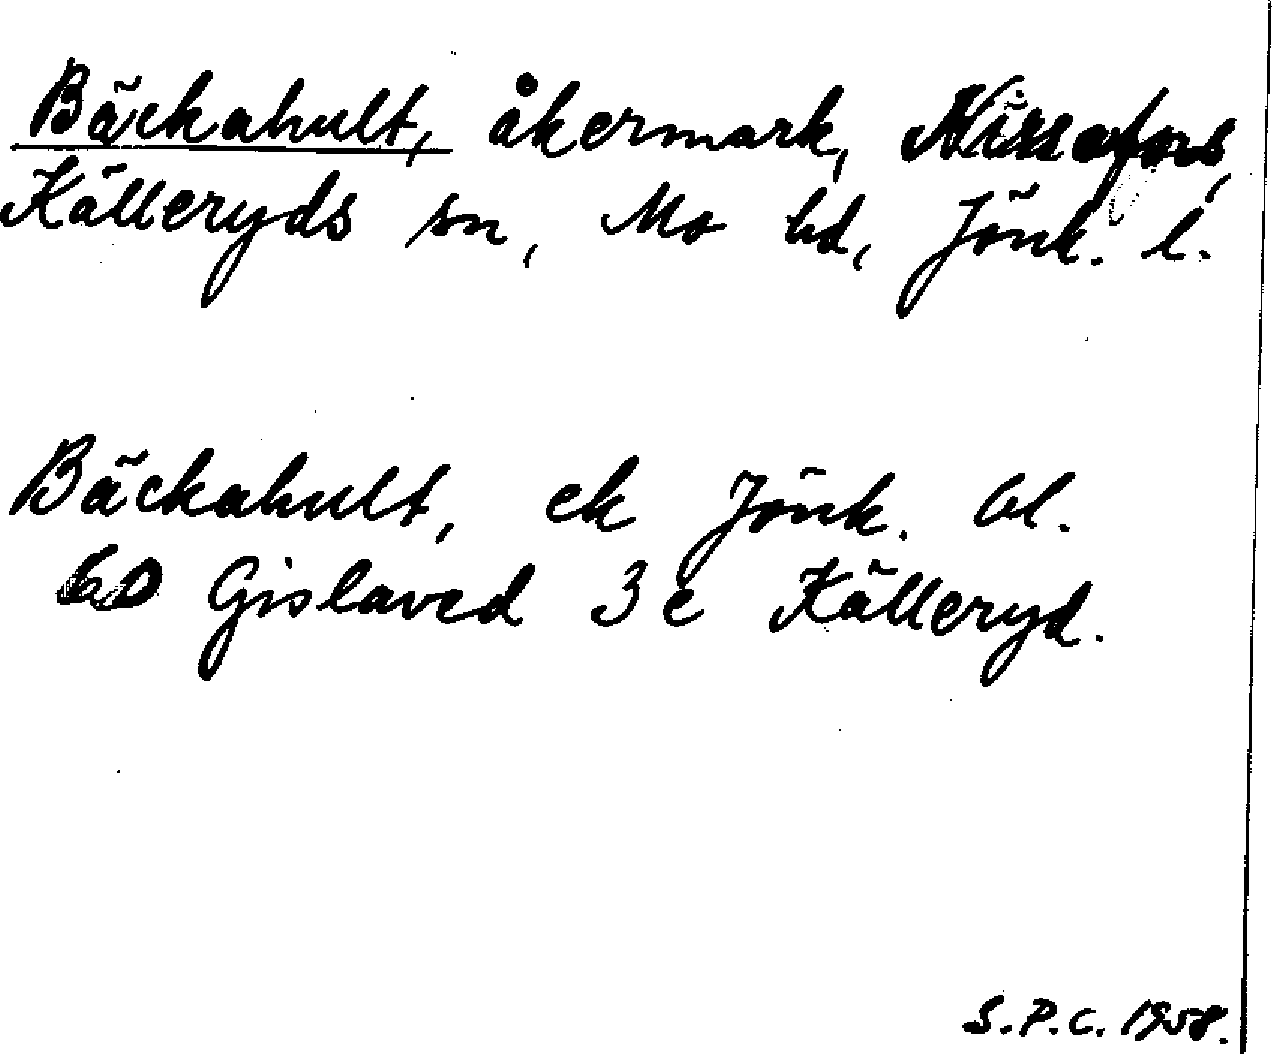 Bäckahult, åkermark, Nissafors,
Källeryds sn, Mo hd, Jönk. l.
Bäckahult, ek Jönk. bl.
6D Gislaved 3 e Källeryd.
S.P.C. 1958.